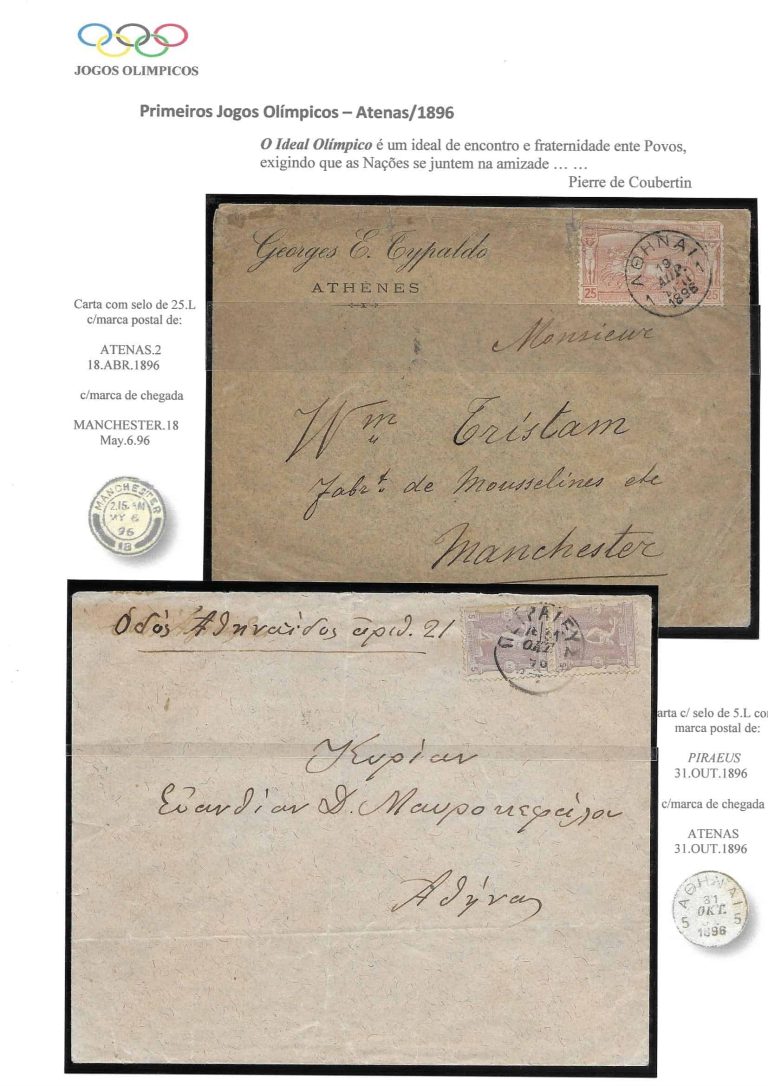 JOGOS OLIMPICOS
Primeiros Jogos Olímpicos – Atenas/1896
O Ideal Olímpico é um ideal de encontro e fraternidade ente Povos,
exigindo que as Nações se juntem na amizade … …
Pierre de Coubertin
Georges E. Typaldo
ATHÈNES
25
25
ΑΘΗΝΑΙ
19
ΑΠΡ.
1896
1
1
Monsieur
Wm Tristam
fabrt. de Mousselines etc
Manchester
Carta com selo de 25.L
c/marca postal de:
ATENAS.2
18.ABR.1896
c/marca de chegada
MANCHESTER.18
May.6.96
MANCHESTER
2.15.AM
MY 6
96
18
Οδός Αθηναΐδος αριθ. 21
5
5
ΟΚΤ
Κυρίαν
Ευανθίαν Δ. Μαυροκεφάλου
Αθήνας
arta c/ selo de 5.L co
marca postal de:
PIRAEUS
31.OUT.1896
c/marca de chegada
ATENAS
31.OUT.1896
ΑΘΗΝΑΙ
31
ΟΚΤ.
5
5
1896